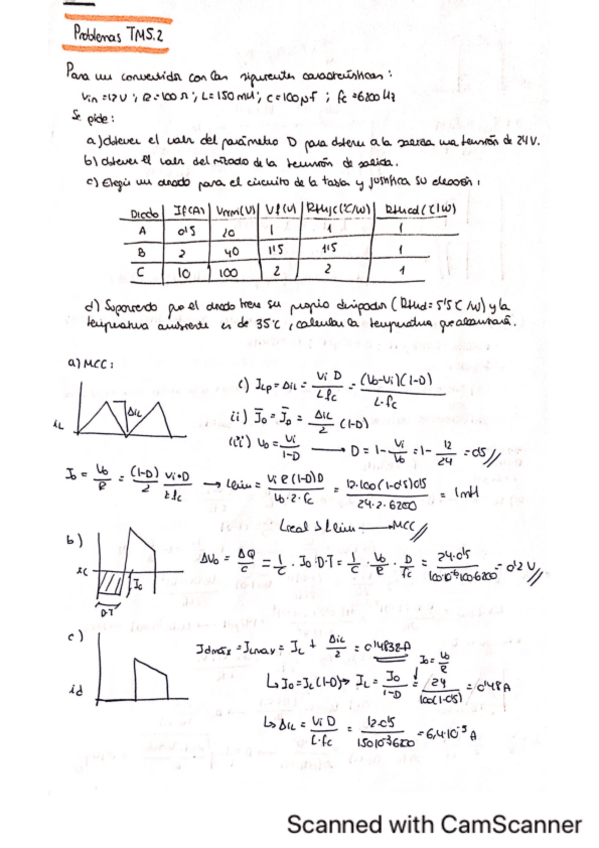 Problemas TM5.2
Para un convertidor con las siguientes características:
Vin=12V ; R=100Ω ; L=150mH ; C=100μF ; fc=6200Hz
Se pide:
a) obtener el valor del parámetro D para obtener a la salida una tensión de 24V.
b) obtener el valor del rizado de la tensión de salida.
c) Elegir un diodo para el circuito de la tabla y justifica su elección:
Diodo IF(A) Vrrm(V) Vf(V) Rthjc(ºC/W) Rthcd(ºC/W)
A 0'5 20 1 1 1
B 2 40 1'5 1'5 1
C 10 100 2 2 1
d) Suponiendo que el diodo tiene su propio disipador (Rthd=5'5ºC/W) y la
temperatura ambiente es de 35ºC, calcular la temperatura que alcanzará.
a) MCC:
iL ΔiL
i) ILp = ΔiL = Vi D / L fc = (Vo-Vi)(1-D) / L·fc
ii) Īo = Īo = ΔiL/2 (1-D)
iii) Vo = Vi/1-D → D = 1- Vi/Vo = 1- 12/24 = 0'5
Io = Vo/R = (1-D)/2 Vi·D/L fc → Lmin = Vi R (1-D)D / Vo·2·fc = 12·100(1-0'5)0'5 / 24·2·6200 = 1mH
Lreal > Lmin → MCC
b)
ic Io D·T
ΔVo = ΔQ/C = 1/C · Io·D·T = 1/C · Vo/R · D/fc = 24·0'5 / 100·10⁻⁶·100·6200 = 0'2V
c)
id
Idmáx = ILmáx = IL + ΔiL/2 = 0'4832A
Io = Vo/R
↳ Io = IL(1-D) → IL = Io/1-D = 24/100(1-0'5) = 0'48A
↳ ΔiL = Vi D / L·fc = 12·0'5 / 150·10⁻³·6200 = 6'4·10⁻³ A
Scanned with CamScanner